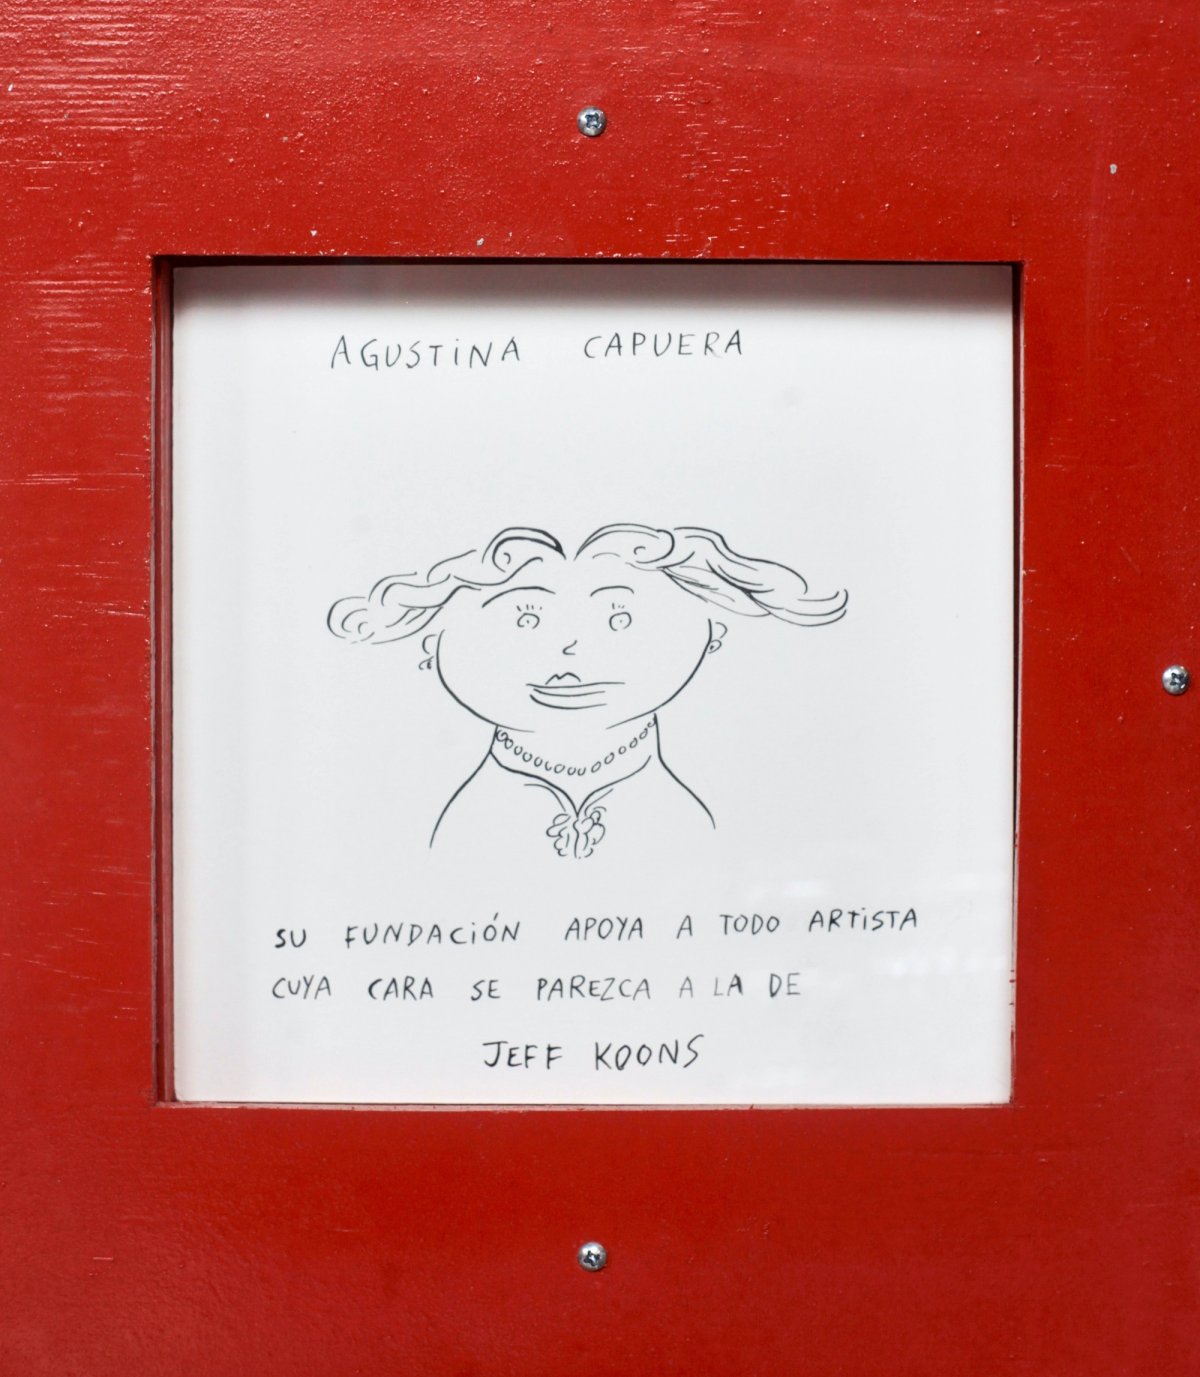 AGUSTiNA CAPUERA
SU FUNDACiÓN APOYA A TODO ARTiSTA
CUYA CARA SE PAREZCA A LA DE
JEFF KOONS